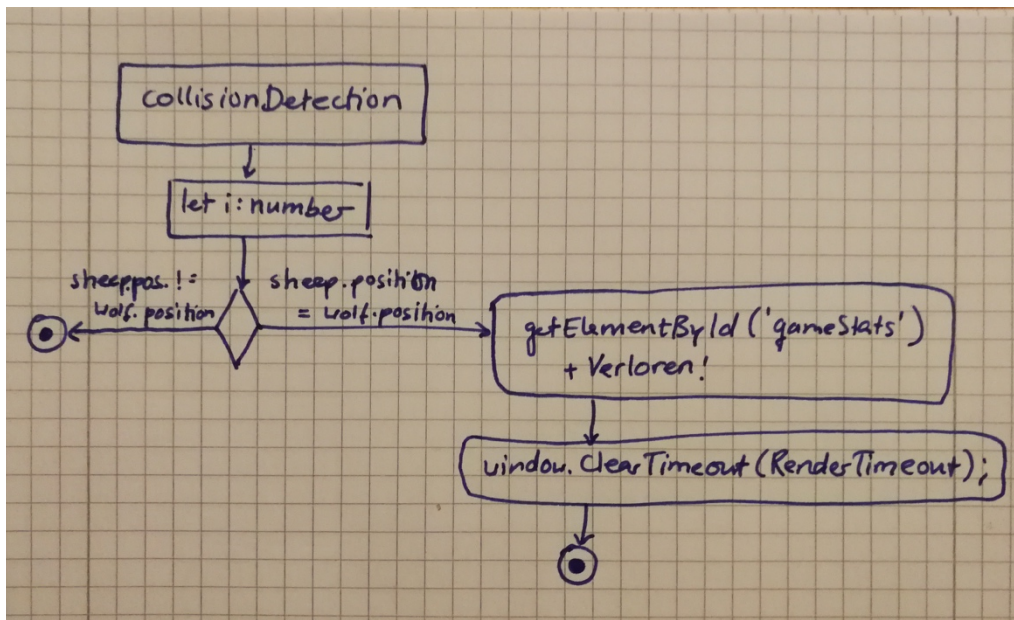 collisionDetection
let i: number
sheep.pos. !=
wolf.position
sheep.position
= wolf.position
getElementById ('gameStats')
+ Verloren!
window.ClearTimeout (RenderTimeout);